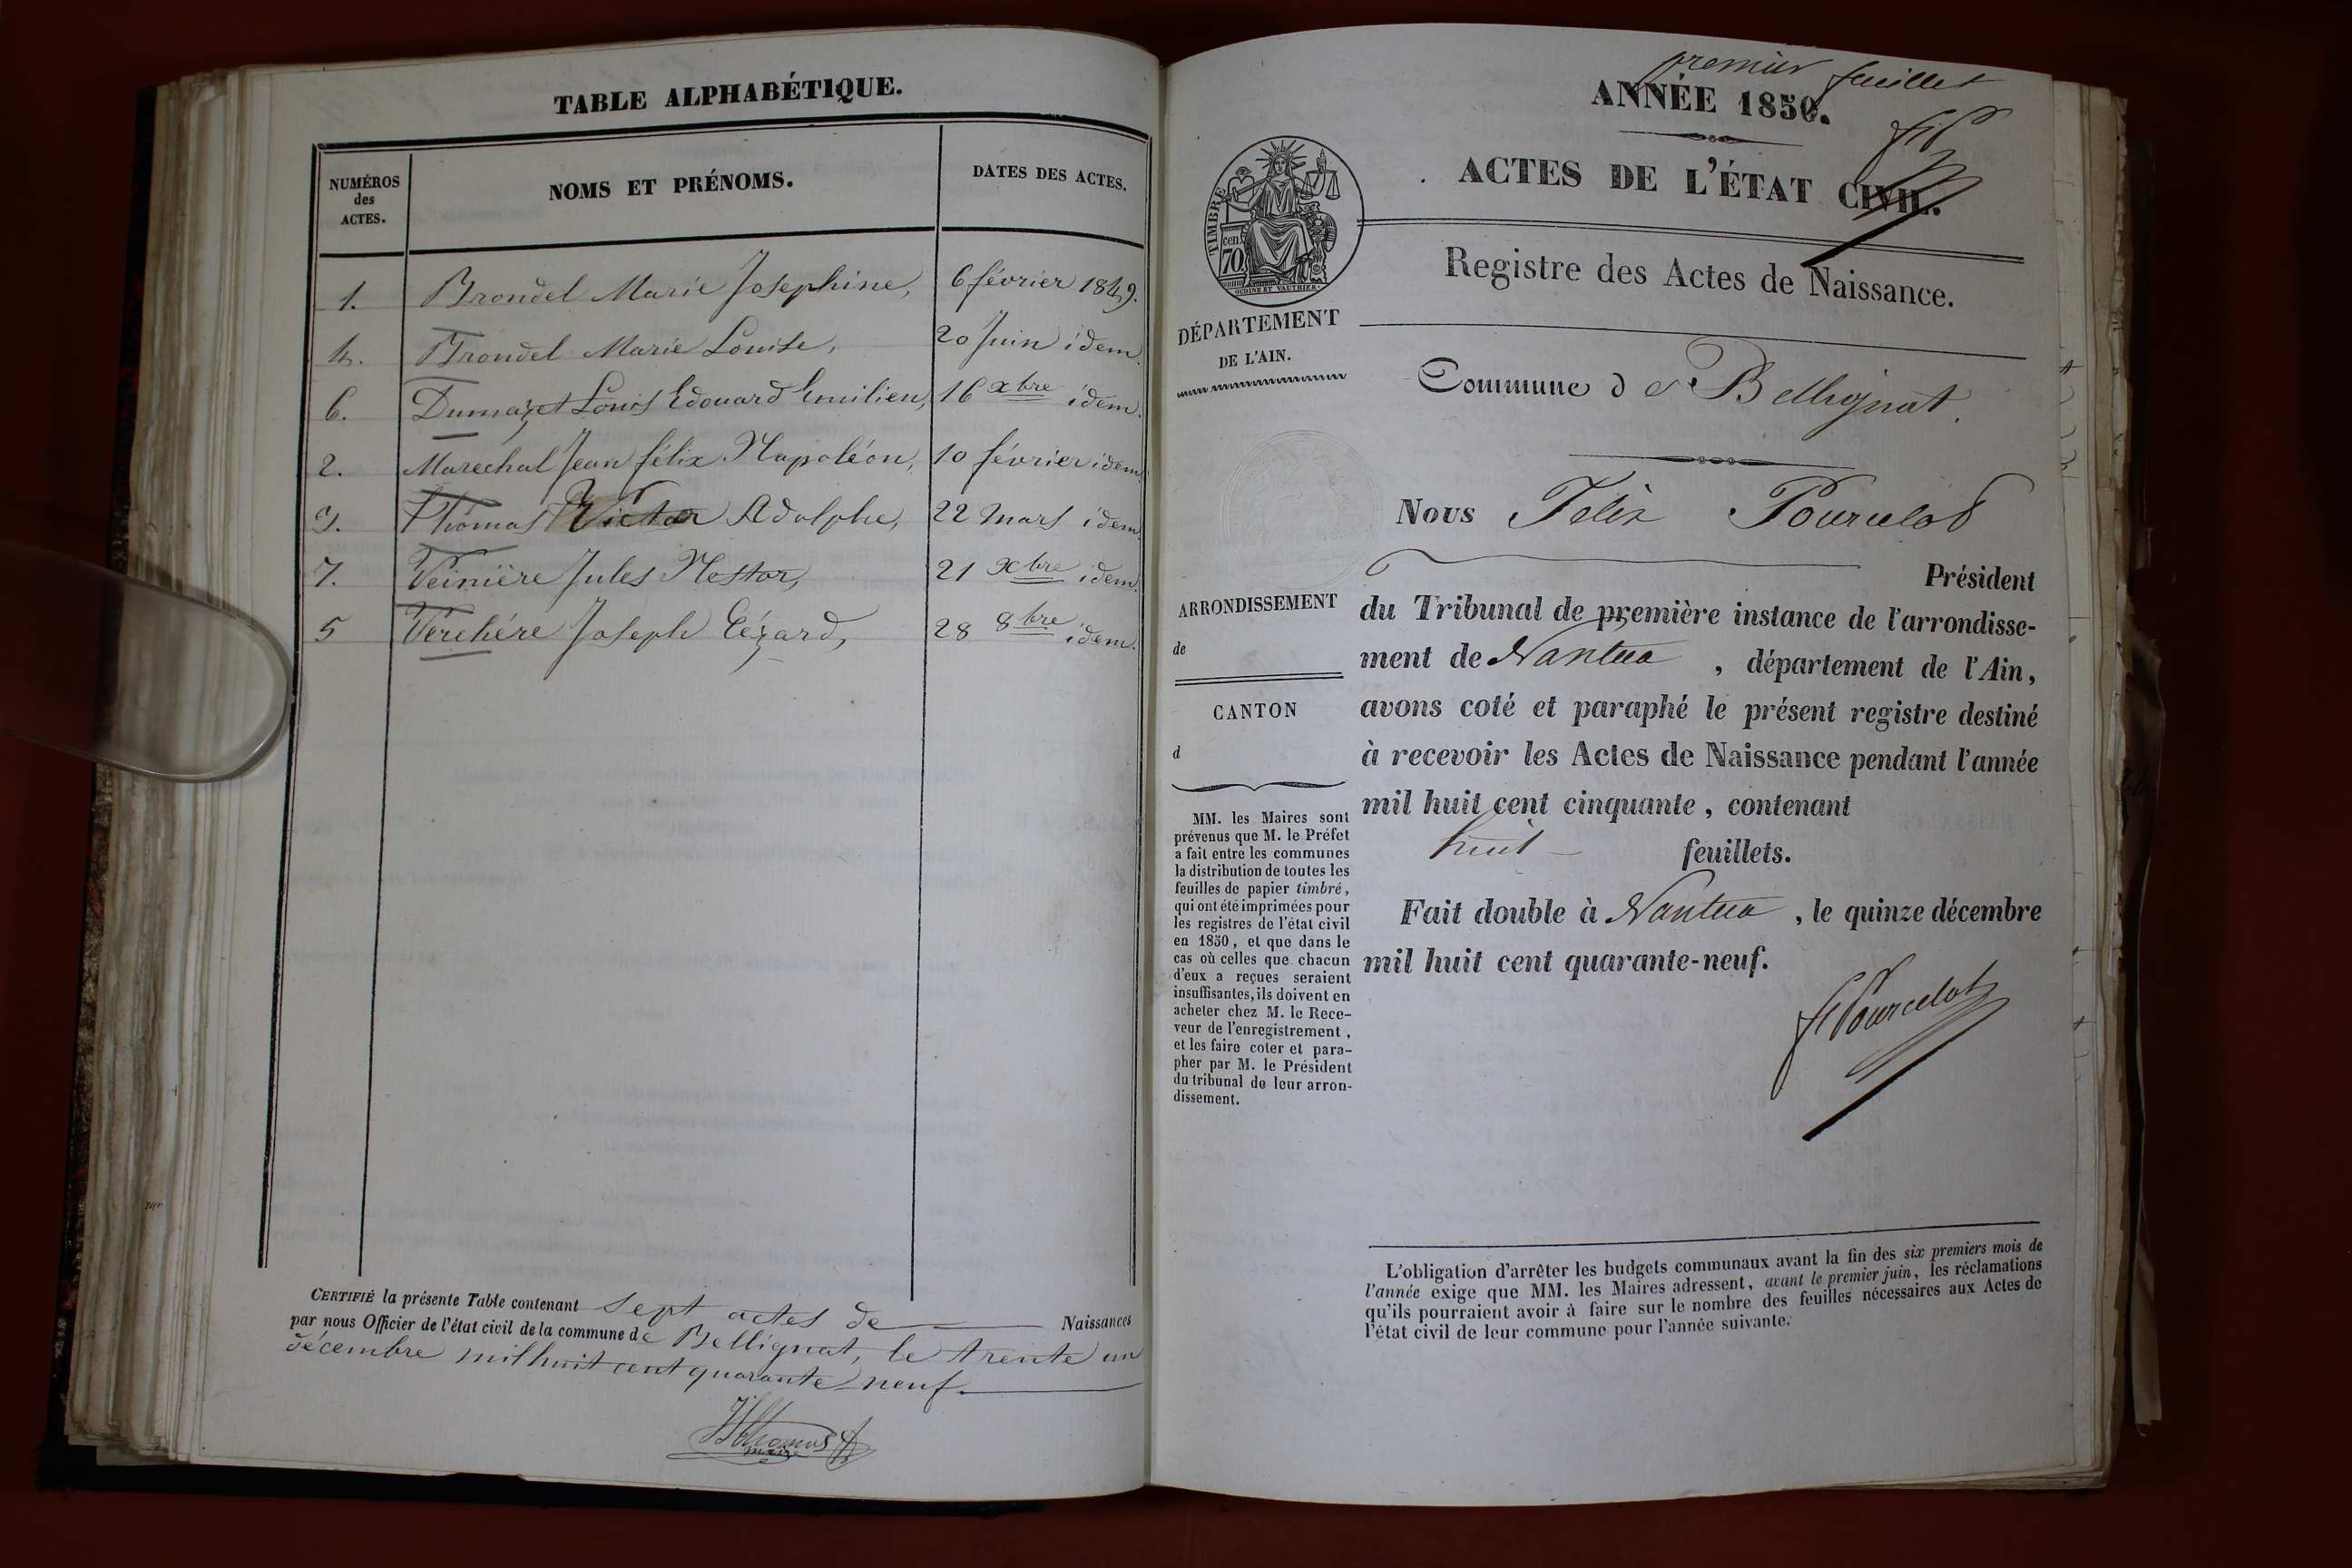 TABLE ALPHABÉTIQUE.
NUMÉROS
des
ACTES.
NOMS ET PRÉNOMS.
DATES DES ACTES.
1. Brondel Marie Josephine, 6 février 1849.
4. Brondel Marie Louise, 20 Juin idem.
6. Dumazet Louis Edouard Emilien, 16 xbre idem.
2. Marechal Jean félix Napoléon, 10 février idem.
3. Thomas Victor Adolphe, 22 Mars idem.
7. Veinière Jules Nestor, 21 xbre idem.
5 Verchére Joseph Cézard, 28 8bre idem.
CERTIFIÉ la présente Table contenant sept actes de Naissances
par nous Officier de l'état civil de la commune de Bellignat, le trente un
décembre mil huit cent quarante neuf.
Thomas
maire
premier feuillet
ANNÉE 1850.
ACTES DE L'ÉTAT CIVIL.
TIMBRE
cen.
70
OUDINÉ ET VAUTHIER.
Registre des Actes de Naissance.
DÉPARTEMENT
DE L'AIN.
Commune de Bellignat.
Nous Félix Pourcelot
Président
du Tribunal de première instance de l'arrondisse-
ment de Nantua, département de l'Ain,
avons coté et paraphé le présent registre destiné
à recevoir les Actes de Naissance pendant l'année
mil huit cent cinquante, contenant
huit feuillets.
Fait double à Nantua, le quinze décembre
mil huit cent quarante-neuf.
F Pourcelot
ARRONDISSEMENT
de
CANTON
d
MM. les Maires sont
prévenus que M. le Préfet
a fait entre les communes
la distribution de toutes les
feuilles de papier timbré,
qui ont été imprimées pour
les registres de l'état civil
en 1850, et que dans le
cas où celles que chacun
d'eux a reçues seraient
insuffisantes, ils doivent en
acheter chez M. le Rece-
veur de l'enregistrement,
et les faire coter et para-
pher par M. le Président
du tribunal de leur arron-
dissement.
L'obligation d'arrêter les budgets communaux avant la fin des six premiers mois de
l'année exige que MM. les Maires adressent, avant le premier juin, les réclamations
qu'ils pourraient avoir à faire sur le nombre des feuilles nécessaires aux Actes de
l'état civil de leur commune pour l'année suivante.